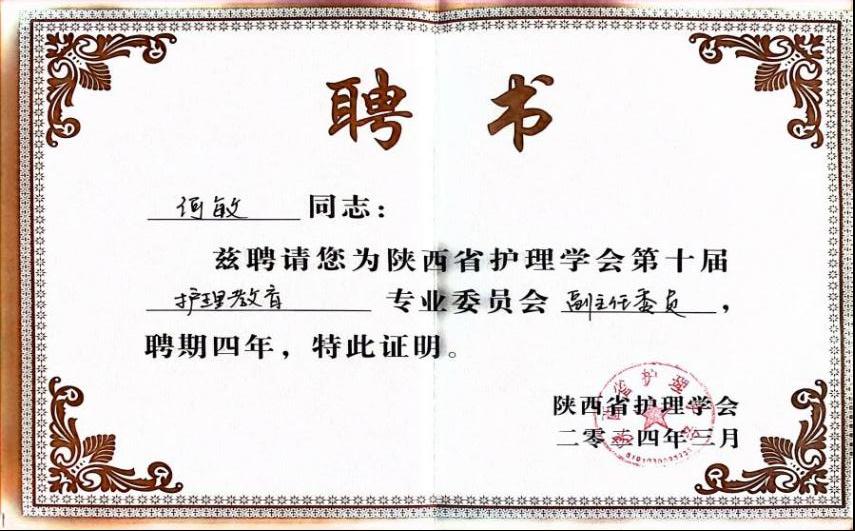 聘书
何敏 同志：
兹聘请您为陕西省护理学会第十届
护理教育 专业委员会 副主任委员，
聘期四年，特此证明。
陕西省护理学会
二零 四年三月